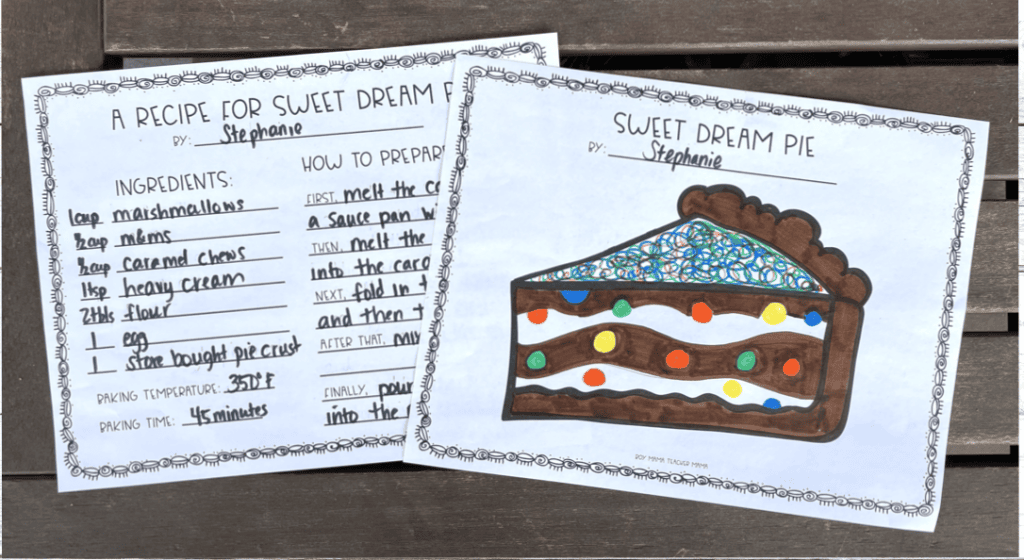 A RECIPE FOR SWEET DREAM
BY: Stephanie
INGREDIENTS:
1cup marshmallows
½cup m&ms
½cup caramel chews
1tsp heavy cream
2tbls flour
1 egg
1 store bought pie crust
BAKING TEMPERATURE: 350°F
BAKING TIME: 45 minutes
HOW TO PREPAR
FIRST, melt the ca
a sauce pan w
THEN, melt the
into the cara
NEXT, fold in t
and then t
AFTER THAT, mix
FINALLY, pour
into the
SWEET DREAM PIE
BY: Stephanie
BOY MAMA TEACHER MAMA